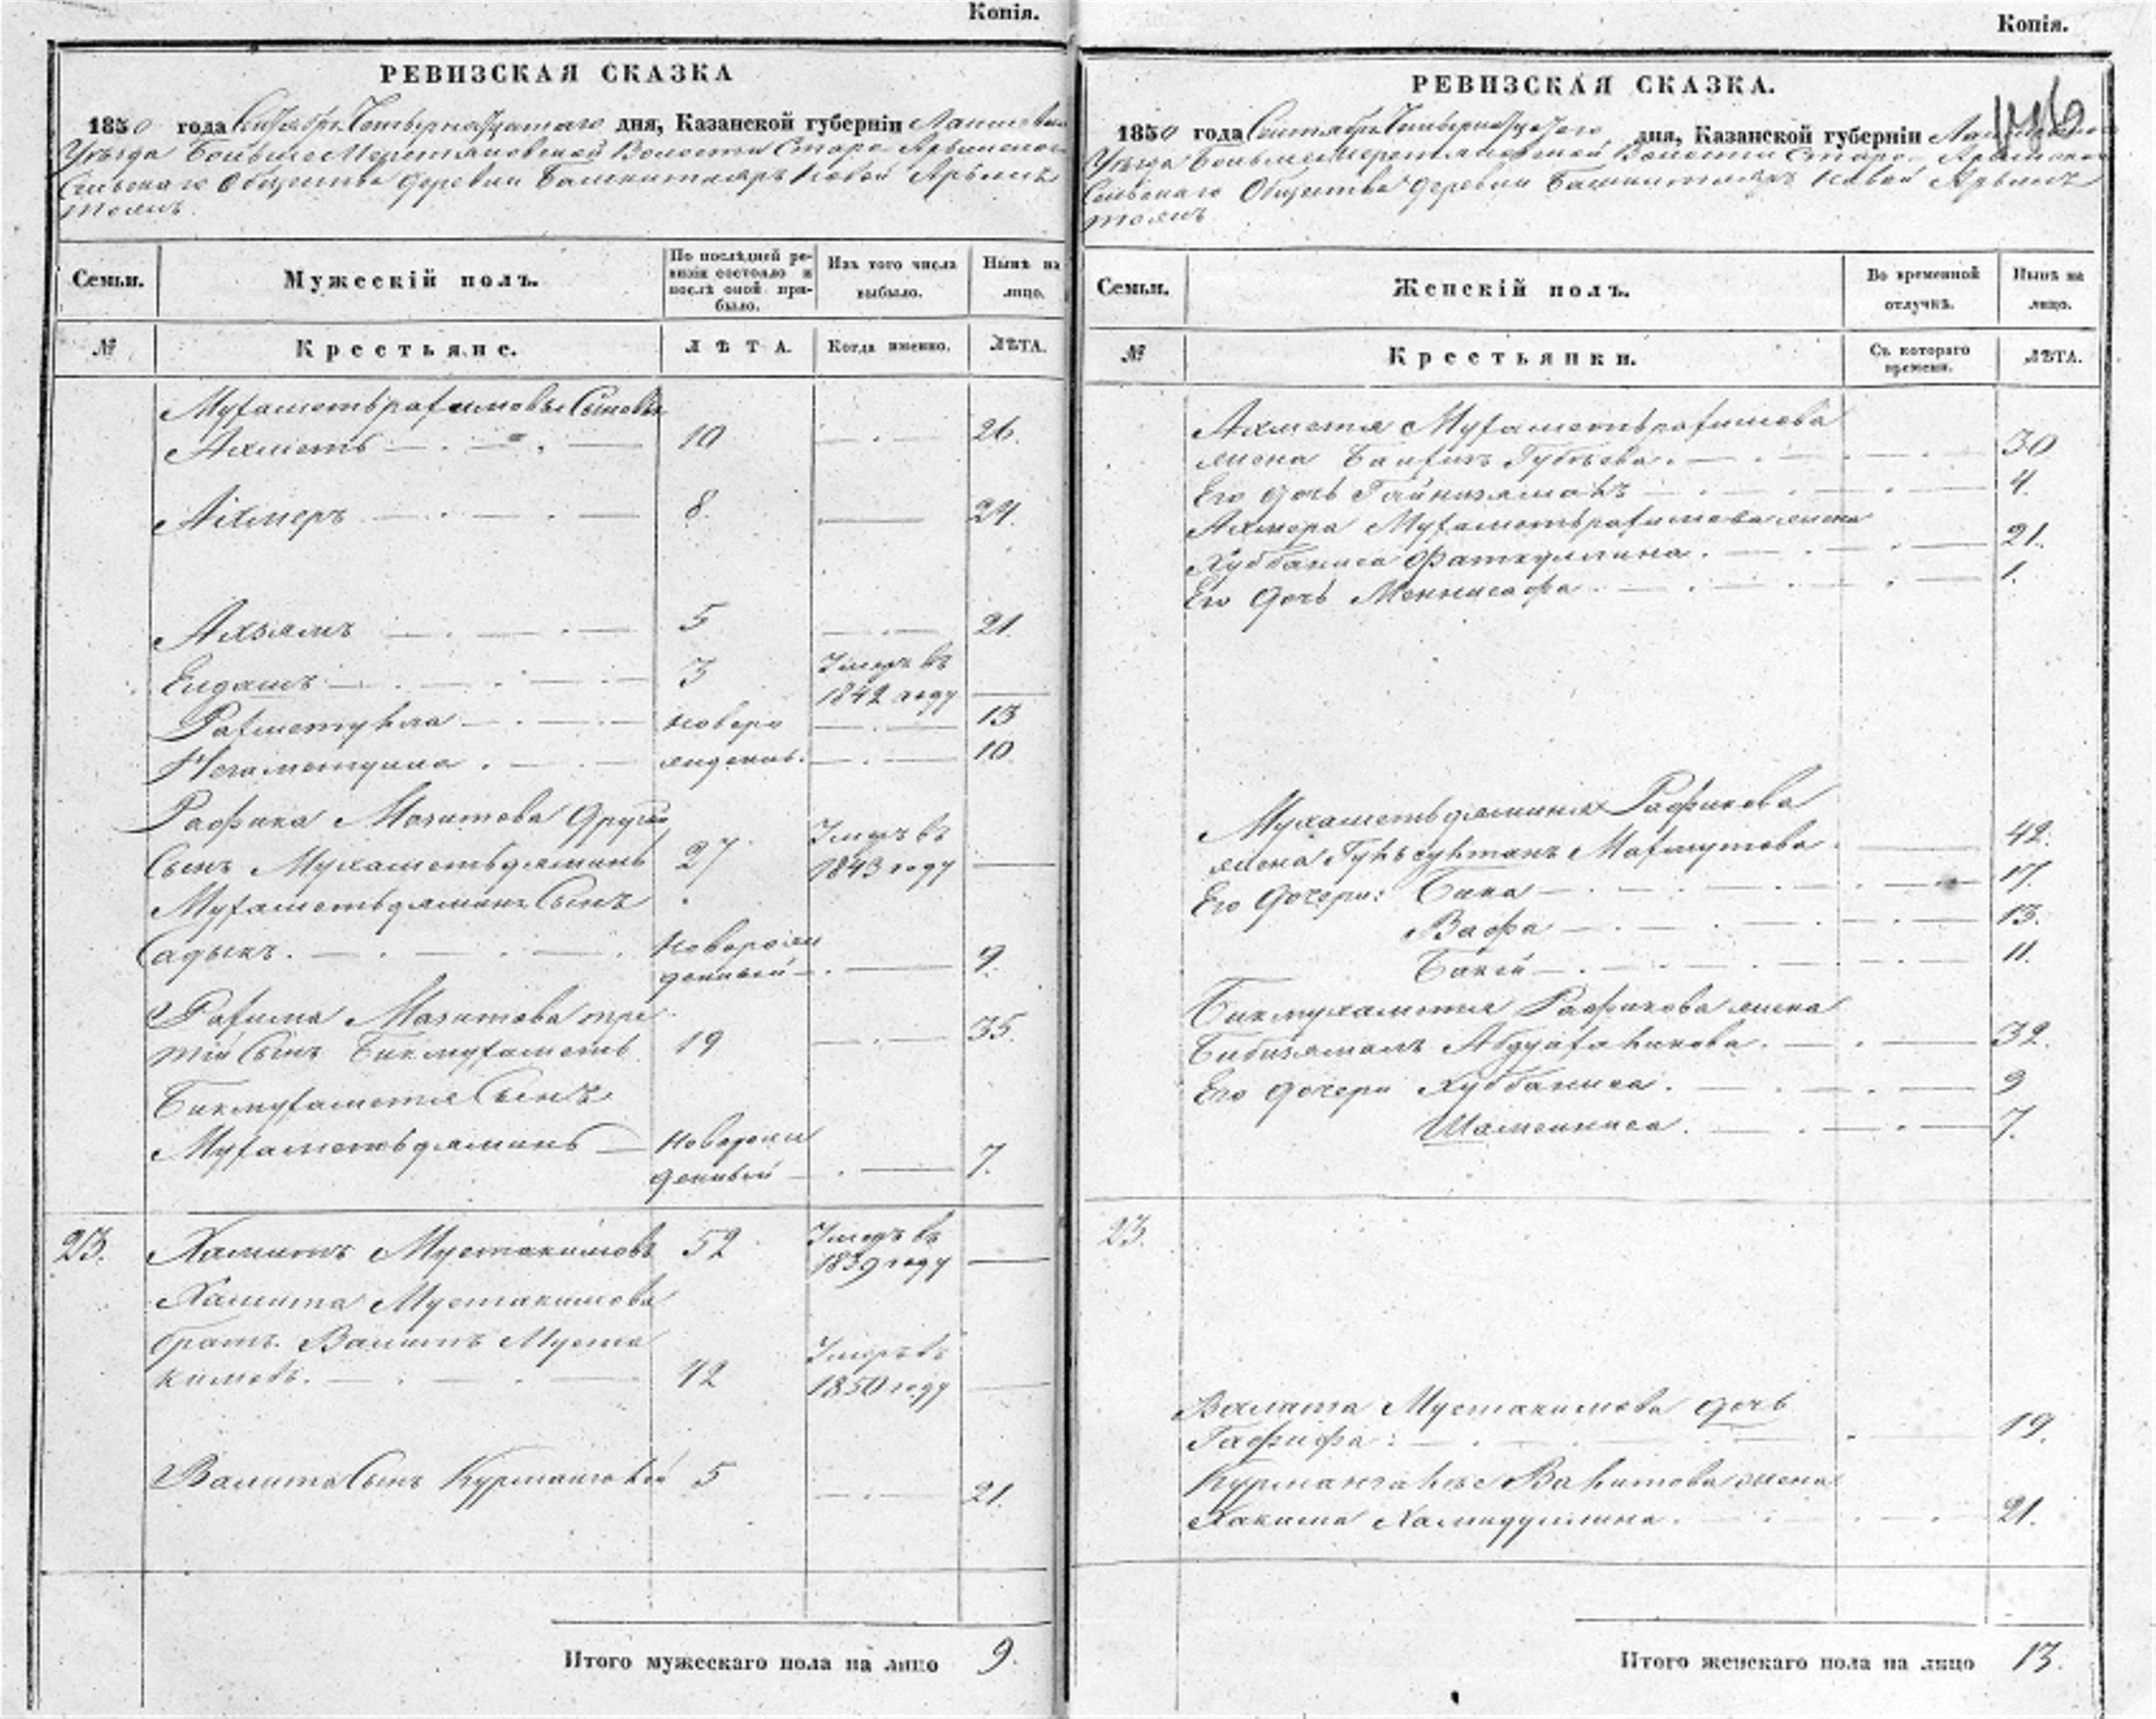 Копія.
РЕВИЗСКАЯ СКАЗКА
1850 года Сентября Четвернадцатаго дня, Казанской губерніи Лаишевскаго
Уѣзда Больше Меретяковской Волости Старо-
Сельскаго Общества деревни
Семьи.
Мужескій полъ.
По послѣдней ревизіи состояло и послѣ оной прибыло.
Изъ того числа выбыло.
Нынѣ на лицо.
№
Крестьяне.
ЛѢТА.
Когда именно.
ЛѢТА.
Мухаметьрахимовы Сыновья
Ахметь 10 26.
Ахмеръ 8. 24.
Ахзямъ 5 21.
Елдашъ 3 Умеръ въ 1842 году
Рахметулла новоро 13
Негаметулла жденые. 10
Рафика Мазитова другой
Сынъ Мухаметьдяминъ 27 Умеръ въ 1843 году
Мухаметьдямина Сынъ
Садыкъ. Новорожденный 9.
Рафика Мазитова тре
тій Сынъ Бикмухаметь 19 35.
Бикмухаметя Сынъ
Мухаметьдяминъ Новорожденный 7.
23. Хамитъ Мустакимовъ 52 Умеръ въ 1839 году
Хамита Мустакимова
братъ Валитъ Муста
кимовъ. 42 Умеръ въ 1850 году
Валита Сынъ Курмангалей 5 21.
Итого мужескаго пола на лицо 9.
Копія.
РЕВИЗСКАЯ СКАЗКА.
1850 года Сентября Четвернадцатаго дня, Казанской губерніи Лаишевскаго
Уѣзда Больше Меретяковской Волости Старо-
Сельскаго Общества деревни
Семьи.
Женскій полъ.
Во временной отлучкѣ.
Нынѣ на лицо.
№
Крестьянки.
Съ котораго времени.
ЛѢТА.
Ахметя Мухаметьрахимова
жена 30
Его дочь Гайнизямалъ 4.
Ахмера Мухаметьрахимова жена
Хуббаниса Фаткуллина. 21.
Его дочь Меннисафа. 1.
Мухаметьдяминя Рафикова
жена Гульсултанъ Махмутова 42.
Его дочери: Бика 17.
Вафа 13.
Бакей 11.
Бикмухаметя Рафикова жена
Бибизямалъ 32.
Его дочери Хуббаниса. 9
Шамсиниса. 7.
23.
Валита Мустакимова дочь
Гафифа: 19.
Курмангалѣя Валитова жена
Хакима Хамидуллина. 21.
Итого женскаго пола на лицо 13.